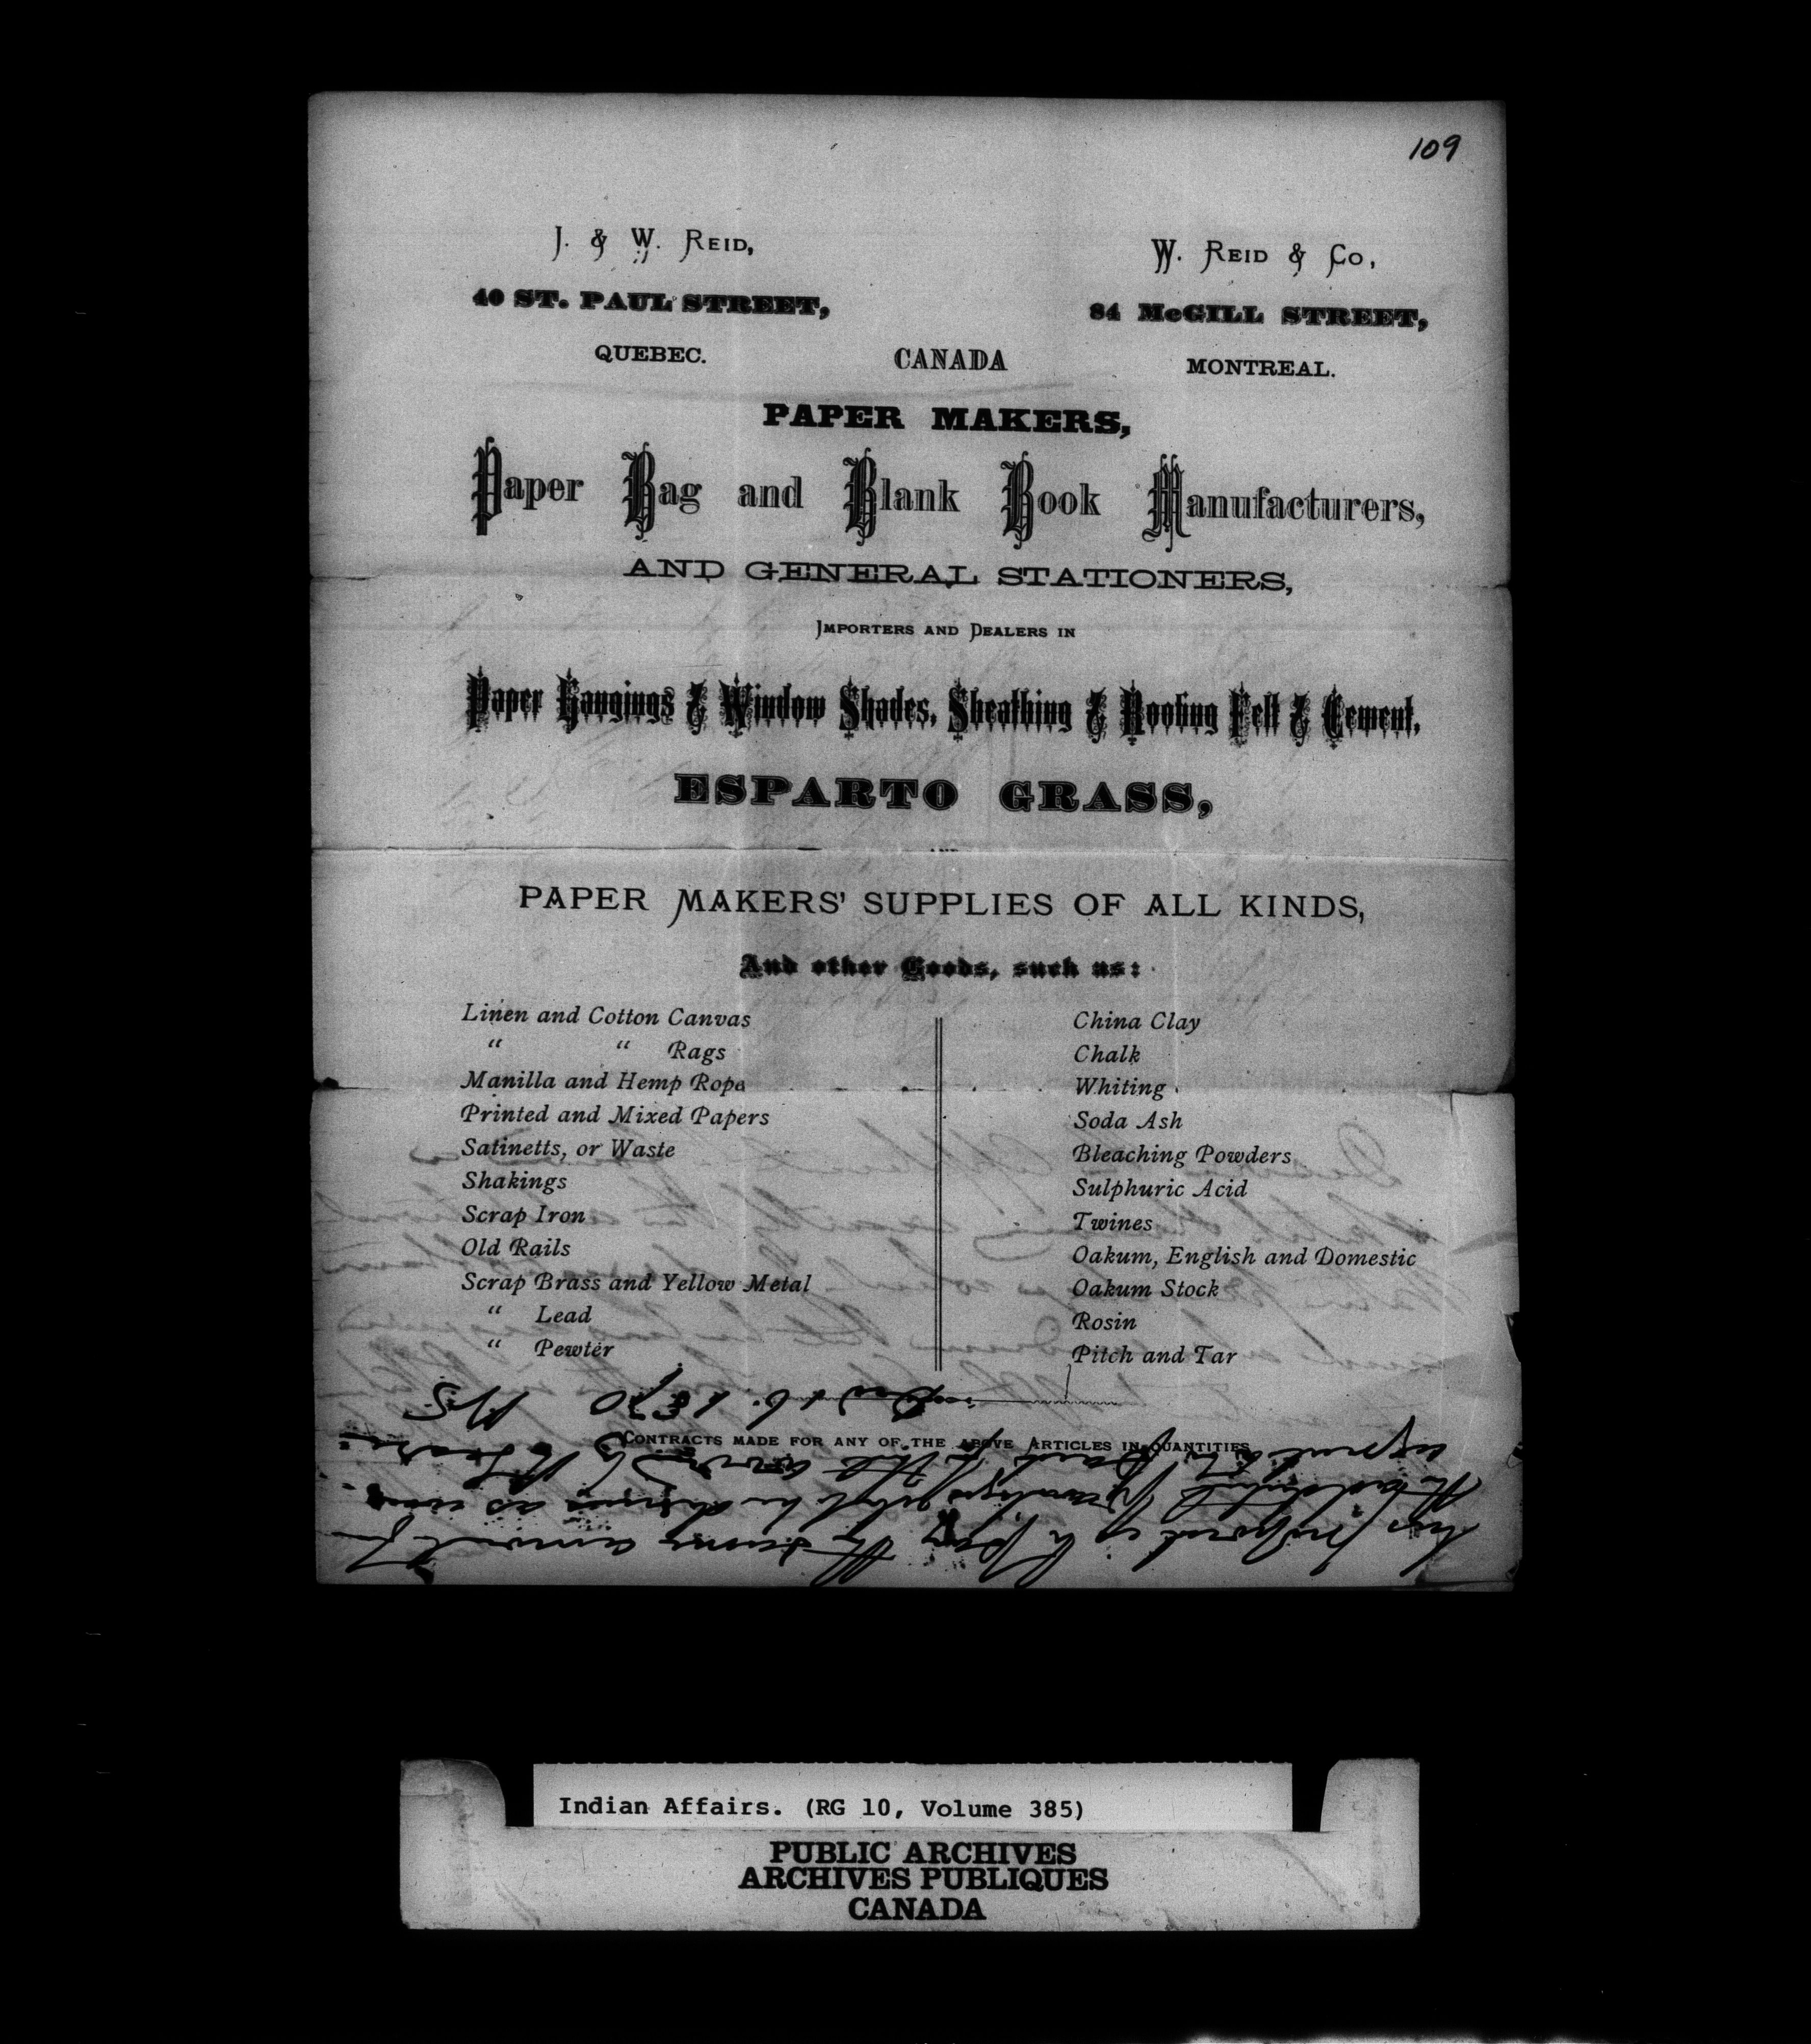 109
J. & W. REID,
40 ST. PAUL STREET,
QUEBEC.
W. REID & Co,
84 McGILL STREET,
MONTREAL.
CANADA
PAPER MAKERS,
Paper Bag and Blank Book Manufacturers,
AND GENERAL STATIONERS,
IMPORTERS AND DEALERS IN
Paper Hangings & Window Shades, Sheathing & Roofing Felt & Cement,
ESPARTO GRASS,
AND
PAPER MAKERS' SUPPLIES OF ALL KINDS,
And other Goods, such as:
Linen and Cotton Canvas
“ “ Rags
Manilla and Hemp Rope
Printed and Mixed Papers
Satinetts, or Waste
Shakings
Scrap Iron
Old Rails
Scrap Brass and Yellow Metal
“ Lead
“ Pewter
China Clay
Chalk
Whiting
Soda Ash
Bleaching Powders
Sulphuric Acid
Twines
Oakum, English and Domestic
Oakum Stock
Rosin
Pitch and Tar
CONTRACTS MADE FOR ANY OF THE ABOVE ARTICLES IN QUANTITIES
the same amount
1870
Indian Affairs. (RG 10, Volume 385)
PUBLIC ARCHIVES
ARCHIVES PUBLIQUES
CANADA